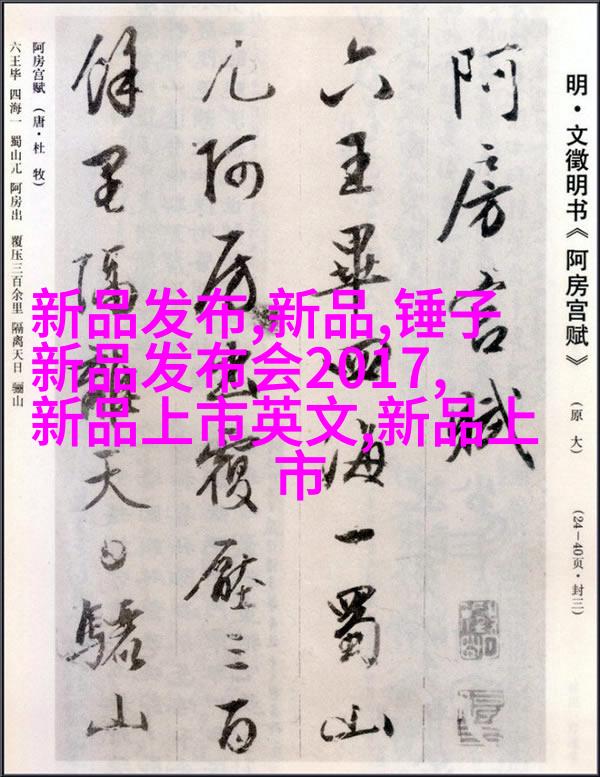 明·文徵明书《阿房宫赋》
(原大)
(24—40页·封三)
阿房宫賦
六王畢四海一蜀山
兀阿房出覆壓三百
餘里隔離天日驪山
阿房宫赋(唐·杜 牧)
六王毕 四海一 蜀山兀 阿房出 覆压三百余里 隔离天日 骊山
新品发布,新品,锤子
新品发布会2017,
新品上市英文,新品上
市